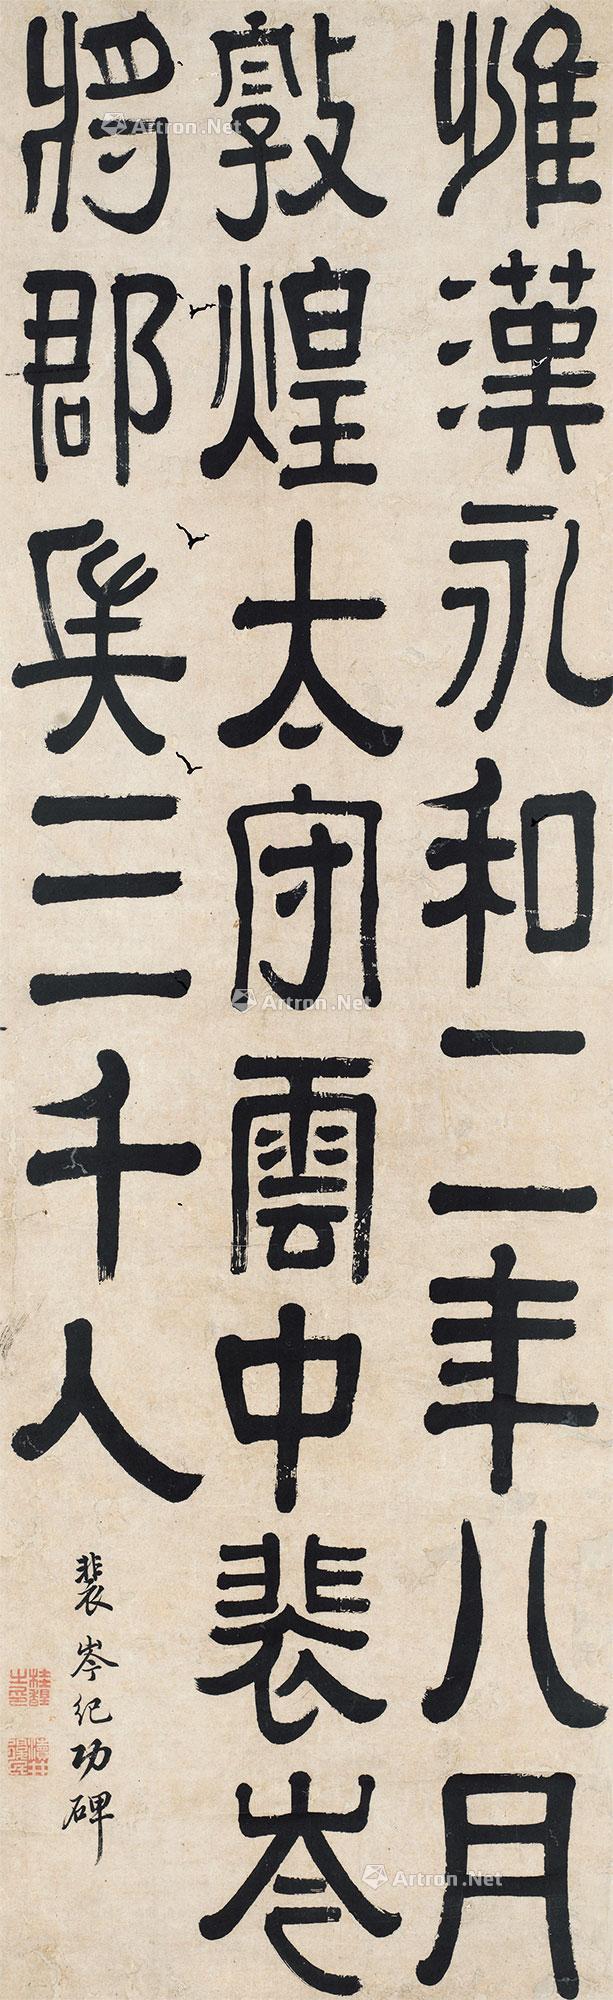 惟漢永和二年八月
敦煌太守雲中裴岑
將郡兵三千人
裴岑紀功碑
Artron.Net
Artron.Net
Artron.Net